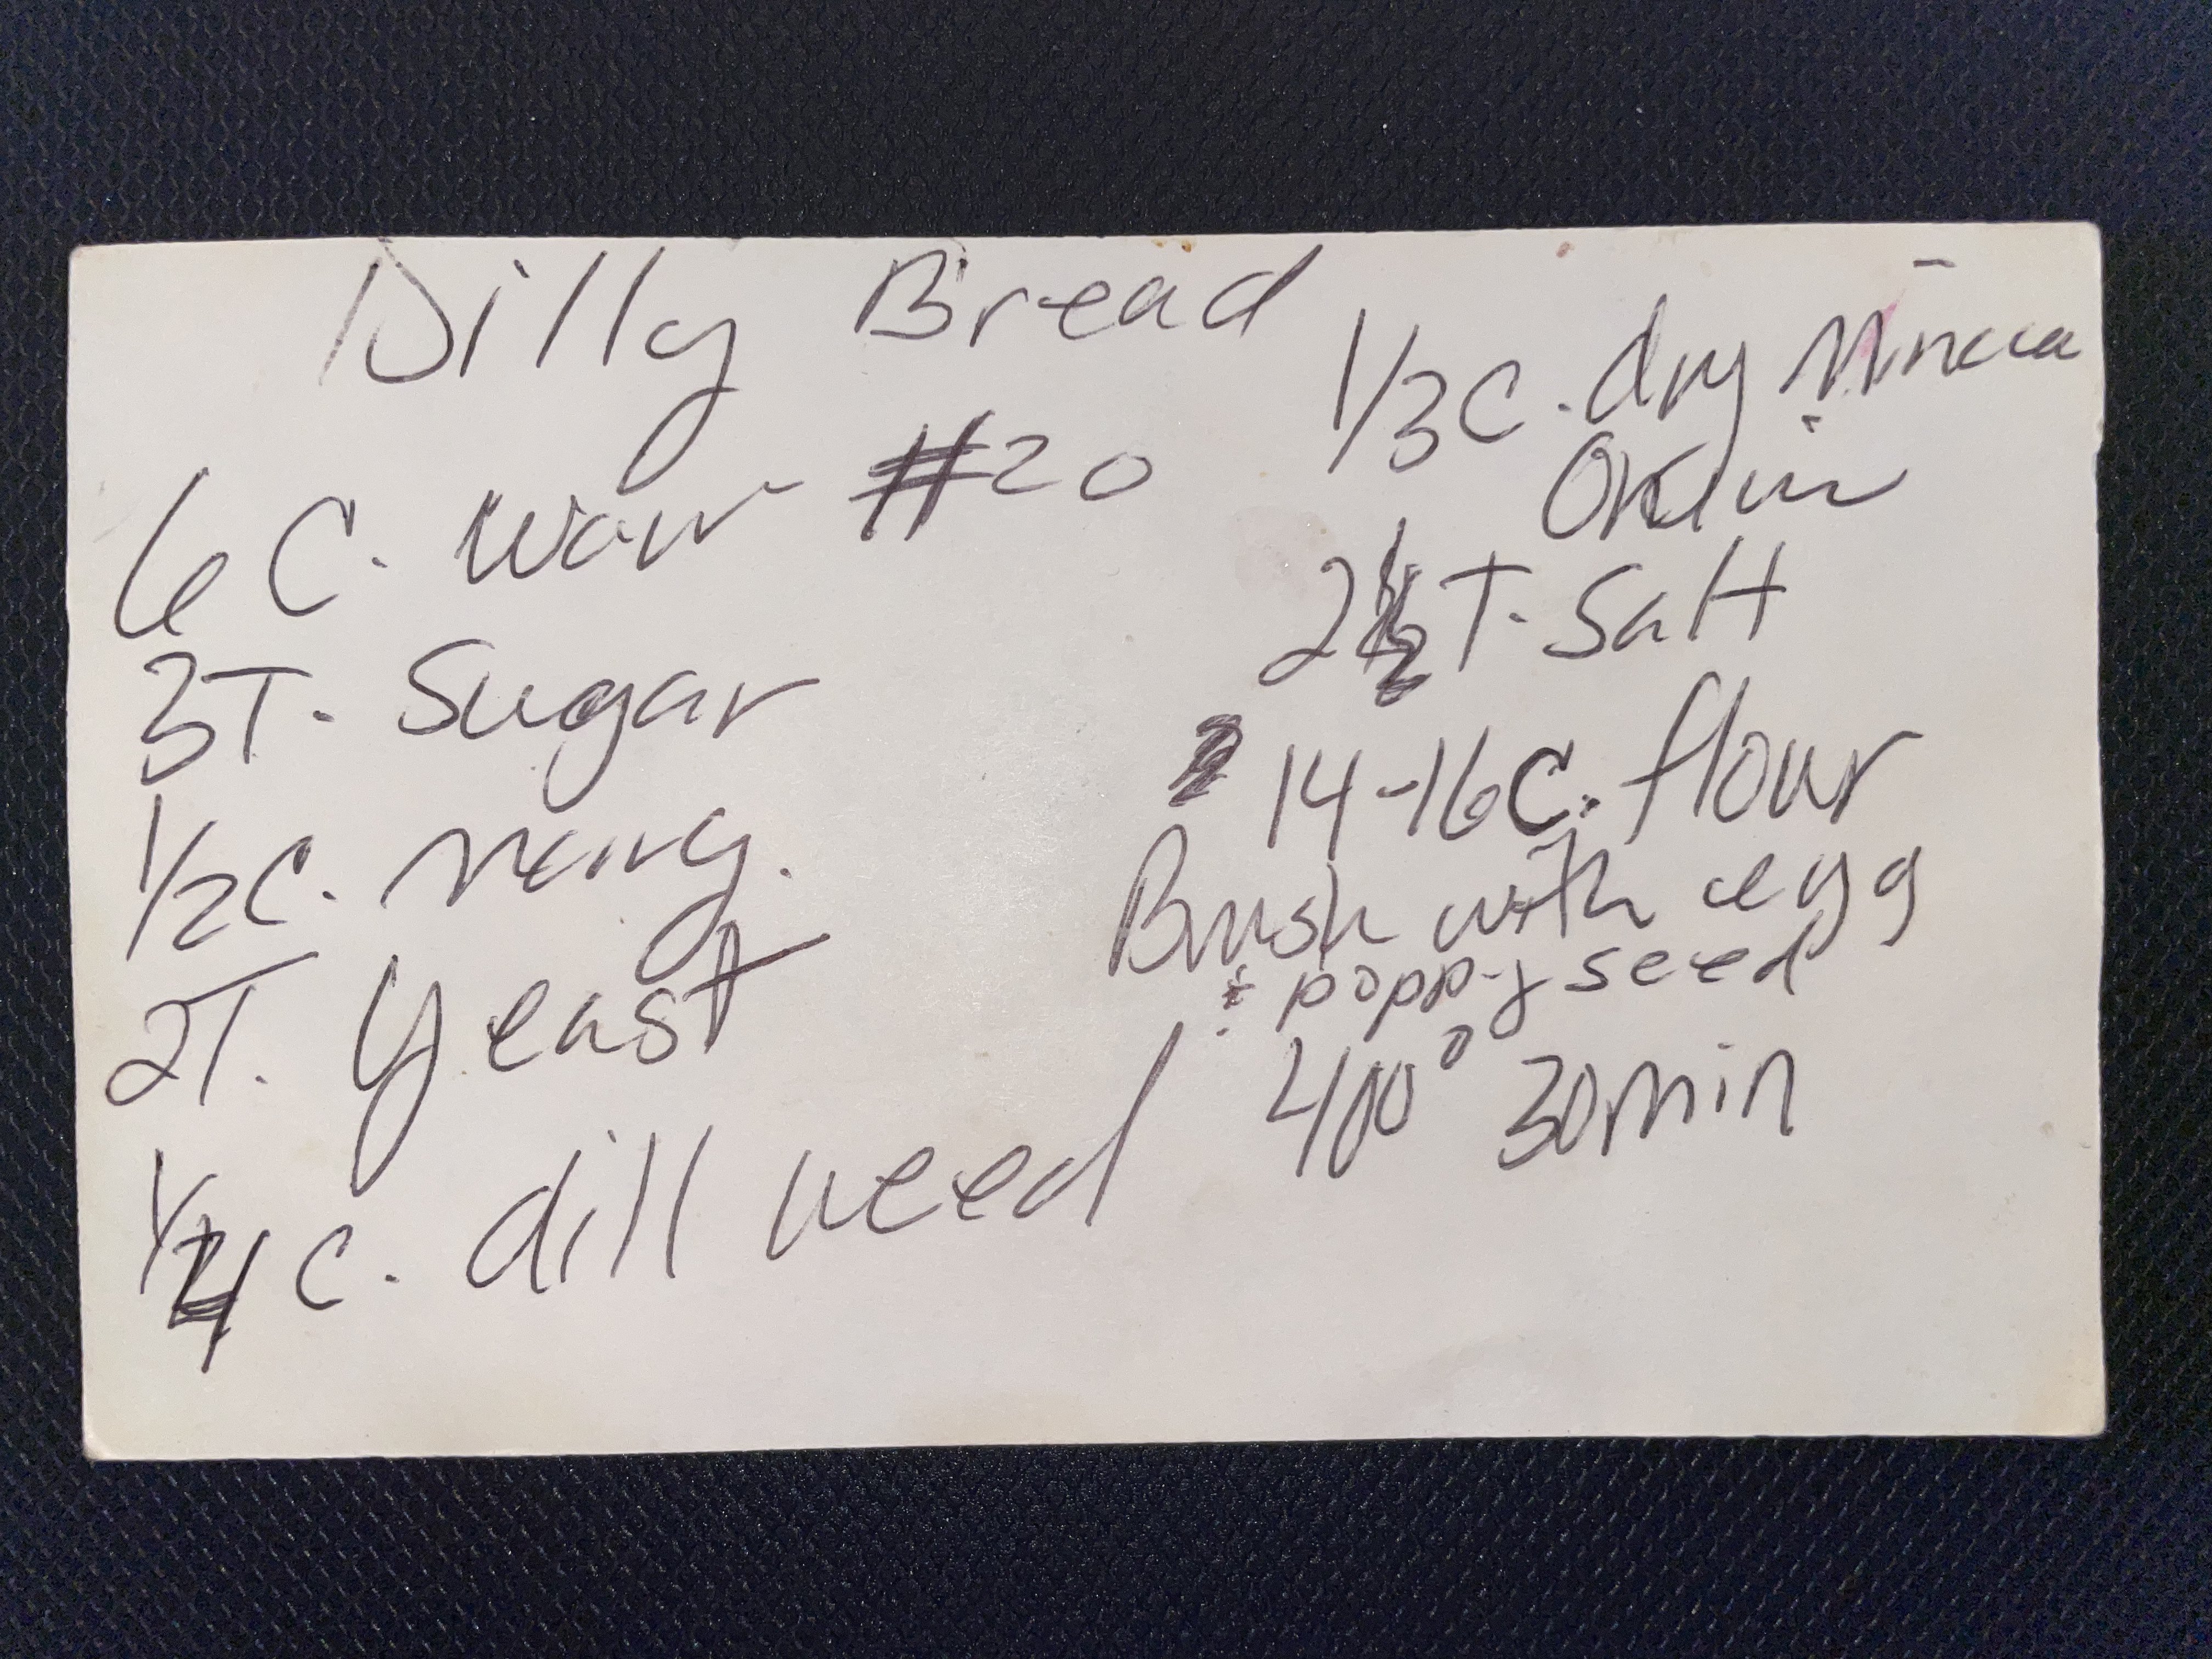 Dilly Bread
6 C. #20
3T. Sugar
1/2 C. marg.
2T. yeast
1/4 C. dill weed
1/3 C. dry
2 1/2 T. Salt
14-16 C. flour
Brush with egg
& poppy seed
400° 30 min